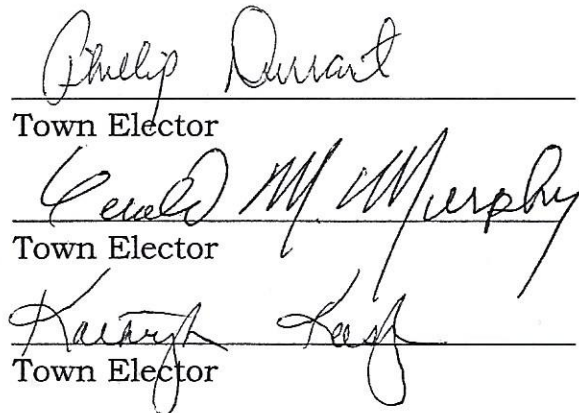 Phillip Durrant
Town Elector
Gerald M. Murphy
Town Elector
Kathryn
Town Elector